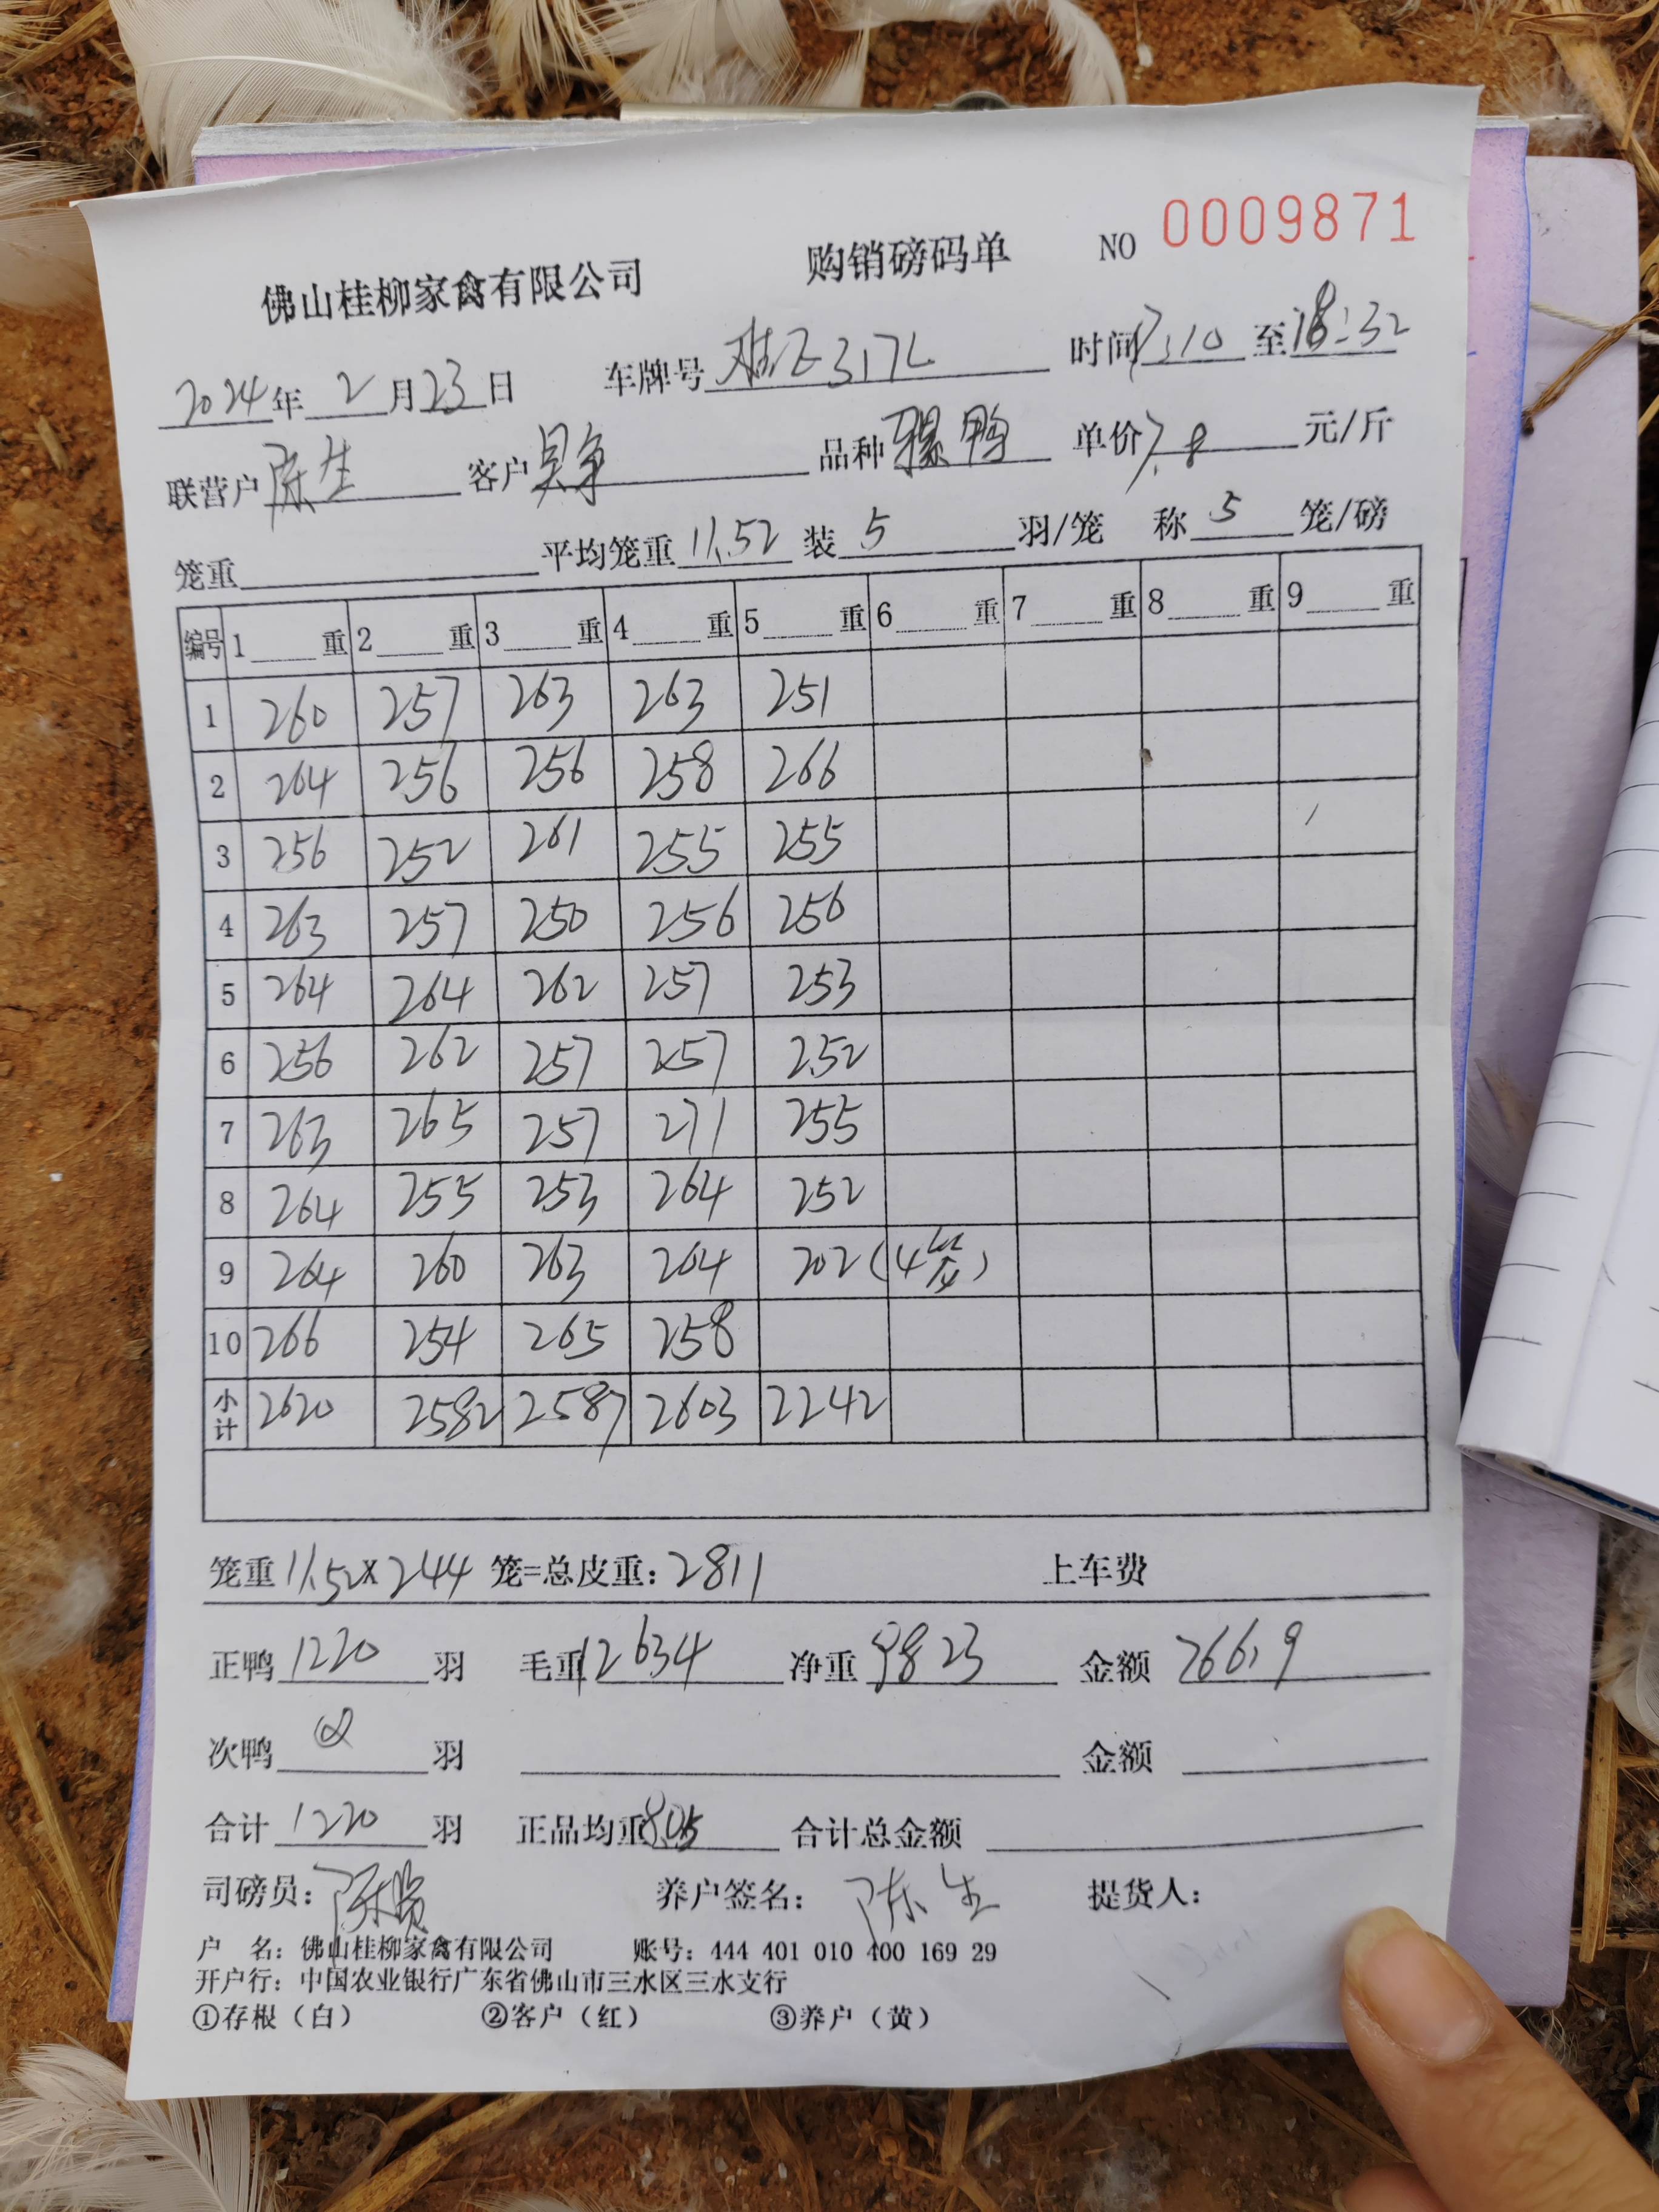 佛山桂柳家禽有限公司 购销磅码单 NO 0009871
2024年 2 月 23 日 车牌号 317L 时间 17:10 至 18:32
联营户 陈生 客户 品种 骡鸭 单价 7.8 元/斤
笼重 平均笼重 11.52 装 5 羽/笼 称 5 笼/磅
编号 1 重 2 重 3 重 4 重 5 重 6 重 7 重 8 重 9 重
1 260 257 263 263 251
2 264 256 256 258 266
3 256 252 261 255 255
4 263 257 250 256 256
5 264 264 262 257 253
6 256 262 257 257 252
7 263 265 257 271 255
8 264 255 253 264 252
9 264 260 263 264 202(4笼)
10 266 254 265 258
小计 2620 2582 2587 2603 2242
笼重 11.52X244 笼=总皮重: 2811 上车费
正鸭 1220 羽 毛重 12634 净重 9823 金额 76619
次鸭 羽 金额
合计 1220 羽 正品均重 8.05 合计总金额
司磅员: 养户签名: 陈生 提货人:
户 名: 佛山桂柳家禽有限公司 账号: 444 401 010 400 169 29
开户行: 中国农业银行广东省佛山市三水区三水支行
①存根（白） ②客户（红） ③养户（黄）